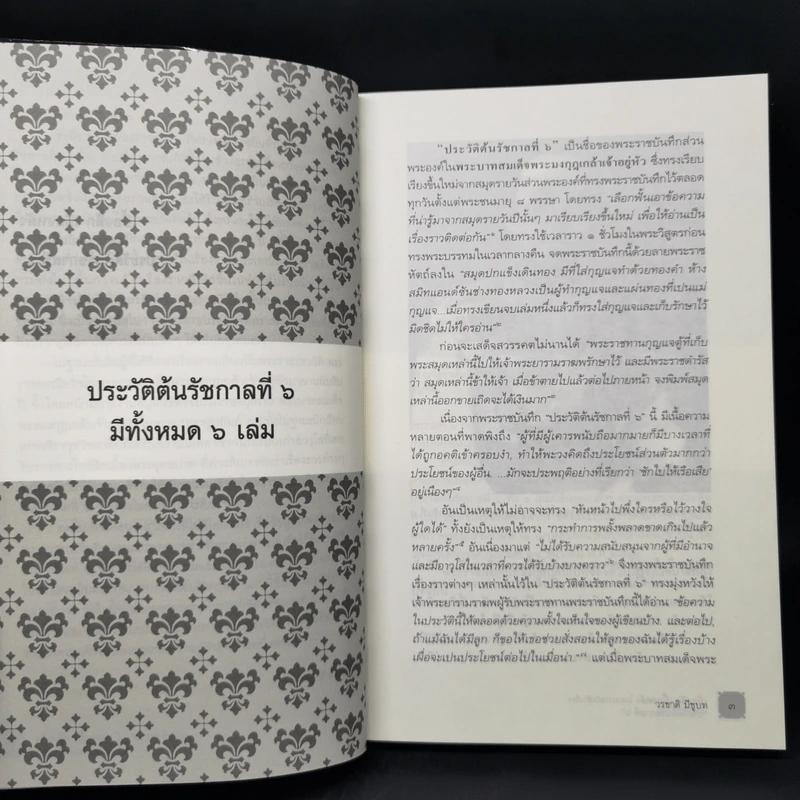 ประวัติต้นรัชกาลที่ ๖
มีทั้งหมด ๖ เล่ม
"ประวัติต้นรัชกาลที่ ๖" เป็นชื่อของพระราชบันทึกส่วน
พระองค์ในพระบาทสมเด็จพระมงกุฎเกล้าเจ้าอยู่หัว ซึ่งทรงเรียบ
เรียงขึ้นใหม่จากสมุดรายวันส่วนพระองค์ที่ทรงพระราชบันทึกไว้ตลอด
ทุกวันตั้งแต่พระชนมายุ ๘ พรรษา โดยทรง "เลือกฟั้นเอาข้อความ
ที่น่ารู้มาจากสมุดรายวันปีนั้นๆ มาเรียบเรียงขึ้นใหม่ เพื่อให้อ่านเป็น
เรื่องราวติดต่อกัน" โดยทรงใช้เวลาราว ๑ ชั่วโมงในพระวิสูตรก่อน
ทรงพระบรรทมในเวลากลางคืน จดพระราชบันทึกนี้ด้วยลายพระราช
หัตถ์ลงใน "สมุดปกแข็งเดินทอง มีที่ใส่กุญแจทำด้วยทองคำ ห้าง
สมิทแอนด์ซันช่างทองหลวงเป็นผู้ทำกุญแจและแผ่นทองที่เปนแม่
กุญแจ...เมื่อทรงเขียนจบเล่มหนึ่งแล้วก็ทรงใส่กุญแจและเก็บรักษาไว้
มิดชิดไม่ให้ใครอ่าน"
ก่อนจะเสด็จสวรรคตไม่นานได้ "พระราชทานกุญแจตู้ที่เก็บ
พระสมุดเหล่านี้ไปให้เจ้าพระยารามราฆพรักษาไว้ และมีพระราชดำรัส
ว่า สมุดเหล่านี้ข้าให้เจ้า เมื่อข้าตายไปแล้วต่อไปภายหน้า จงพิมพ์สมุด
เหล่านี้ออกขายเถิดจะได้เงินมาก"
เนื่องจากพระราชบันทึก "ประวัติต้นรัชกาลที่ ๖" นี้ มีเนื้อความ
หลายตอนที่พาดพิงถึง "ผู้ที่มีผู้เคารพนับถือมากมายก็มีบางเวลาที่
ได้ถูกคติเข้าครอบงำ, ทำให้พะวงคิดถึงประโยชน์ส่วนตัวมากกว่า
ประโยชน์ของผู้อื่น. ...มักจะประพฤติอย่างที่เรียกว่า 'ชักใบให้เรือเสีย'
อยู่เนืองๆ"
อันเป็นเหตุให้ไม่อาจจะทรง "หันหน้าไปพึ่งใครหรือไว้วางใจ
ผู้ใดได้" ทั้งยังเป็นเหตุให้ทรง "กระทำการพลั้งพลาดขาดเกินไปแล้ว
หลายครั้ง" อันเนื่องมาแต่ "ไม่ได้รับความสนับสนุนจากผู้ที่มีอำนาจ
และมีอาวุโสในเวลาที่ควรได้รับบ้างบางคราว" จึงทรงพระราชบันทึก
เรื่องราวต่างๆ เหล่านั้นไว้ใน "ประวัติต้นรัชกาลที่ ๖" ทรงมุ่งหวังให้
เจ้าพระยารามราฆพผู้รับพระราชทานพระราชบันทึกนี้ได้อ่าน "ข้อความ
ในประวัตินี้ให้ตลอดด้วยความตั้งใจเห็นใจของผู้เขียนบ้าง. และต่อไป,
ถ้าแม้ฉันได้มีลูก ก็ขอให้เธอช่วยสั่งสอนให้ลูกของฉันได้รู้เรื่องบ้าง
เผื่อจะเปนประโยชน์ต่อไปในเมื่อน่า." แต่เมื่อพระบาทสมเด็จพระ
วรชาติ มีชูบท
๓